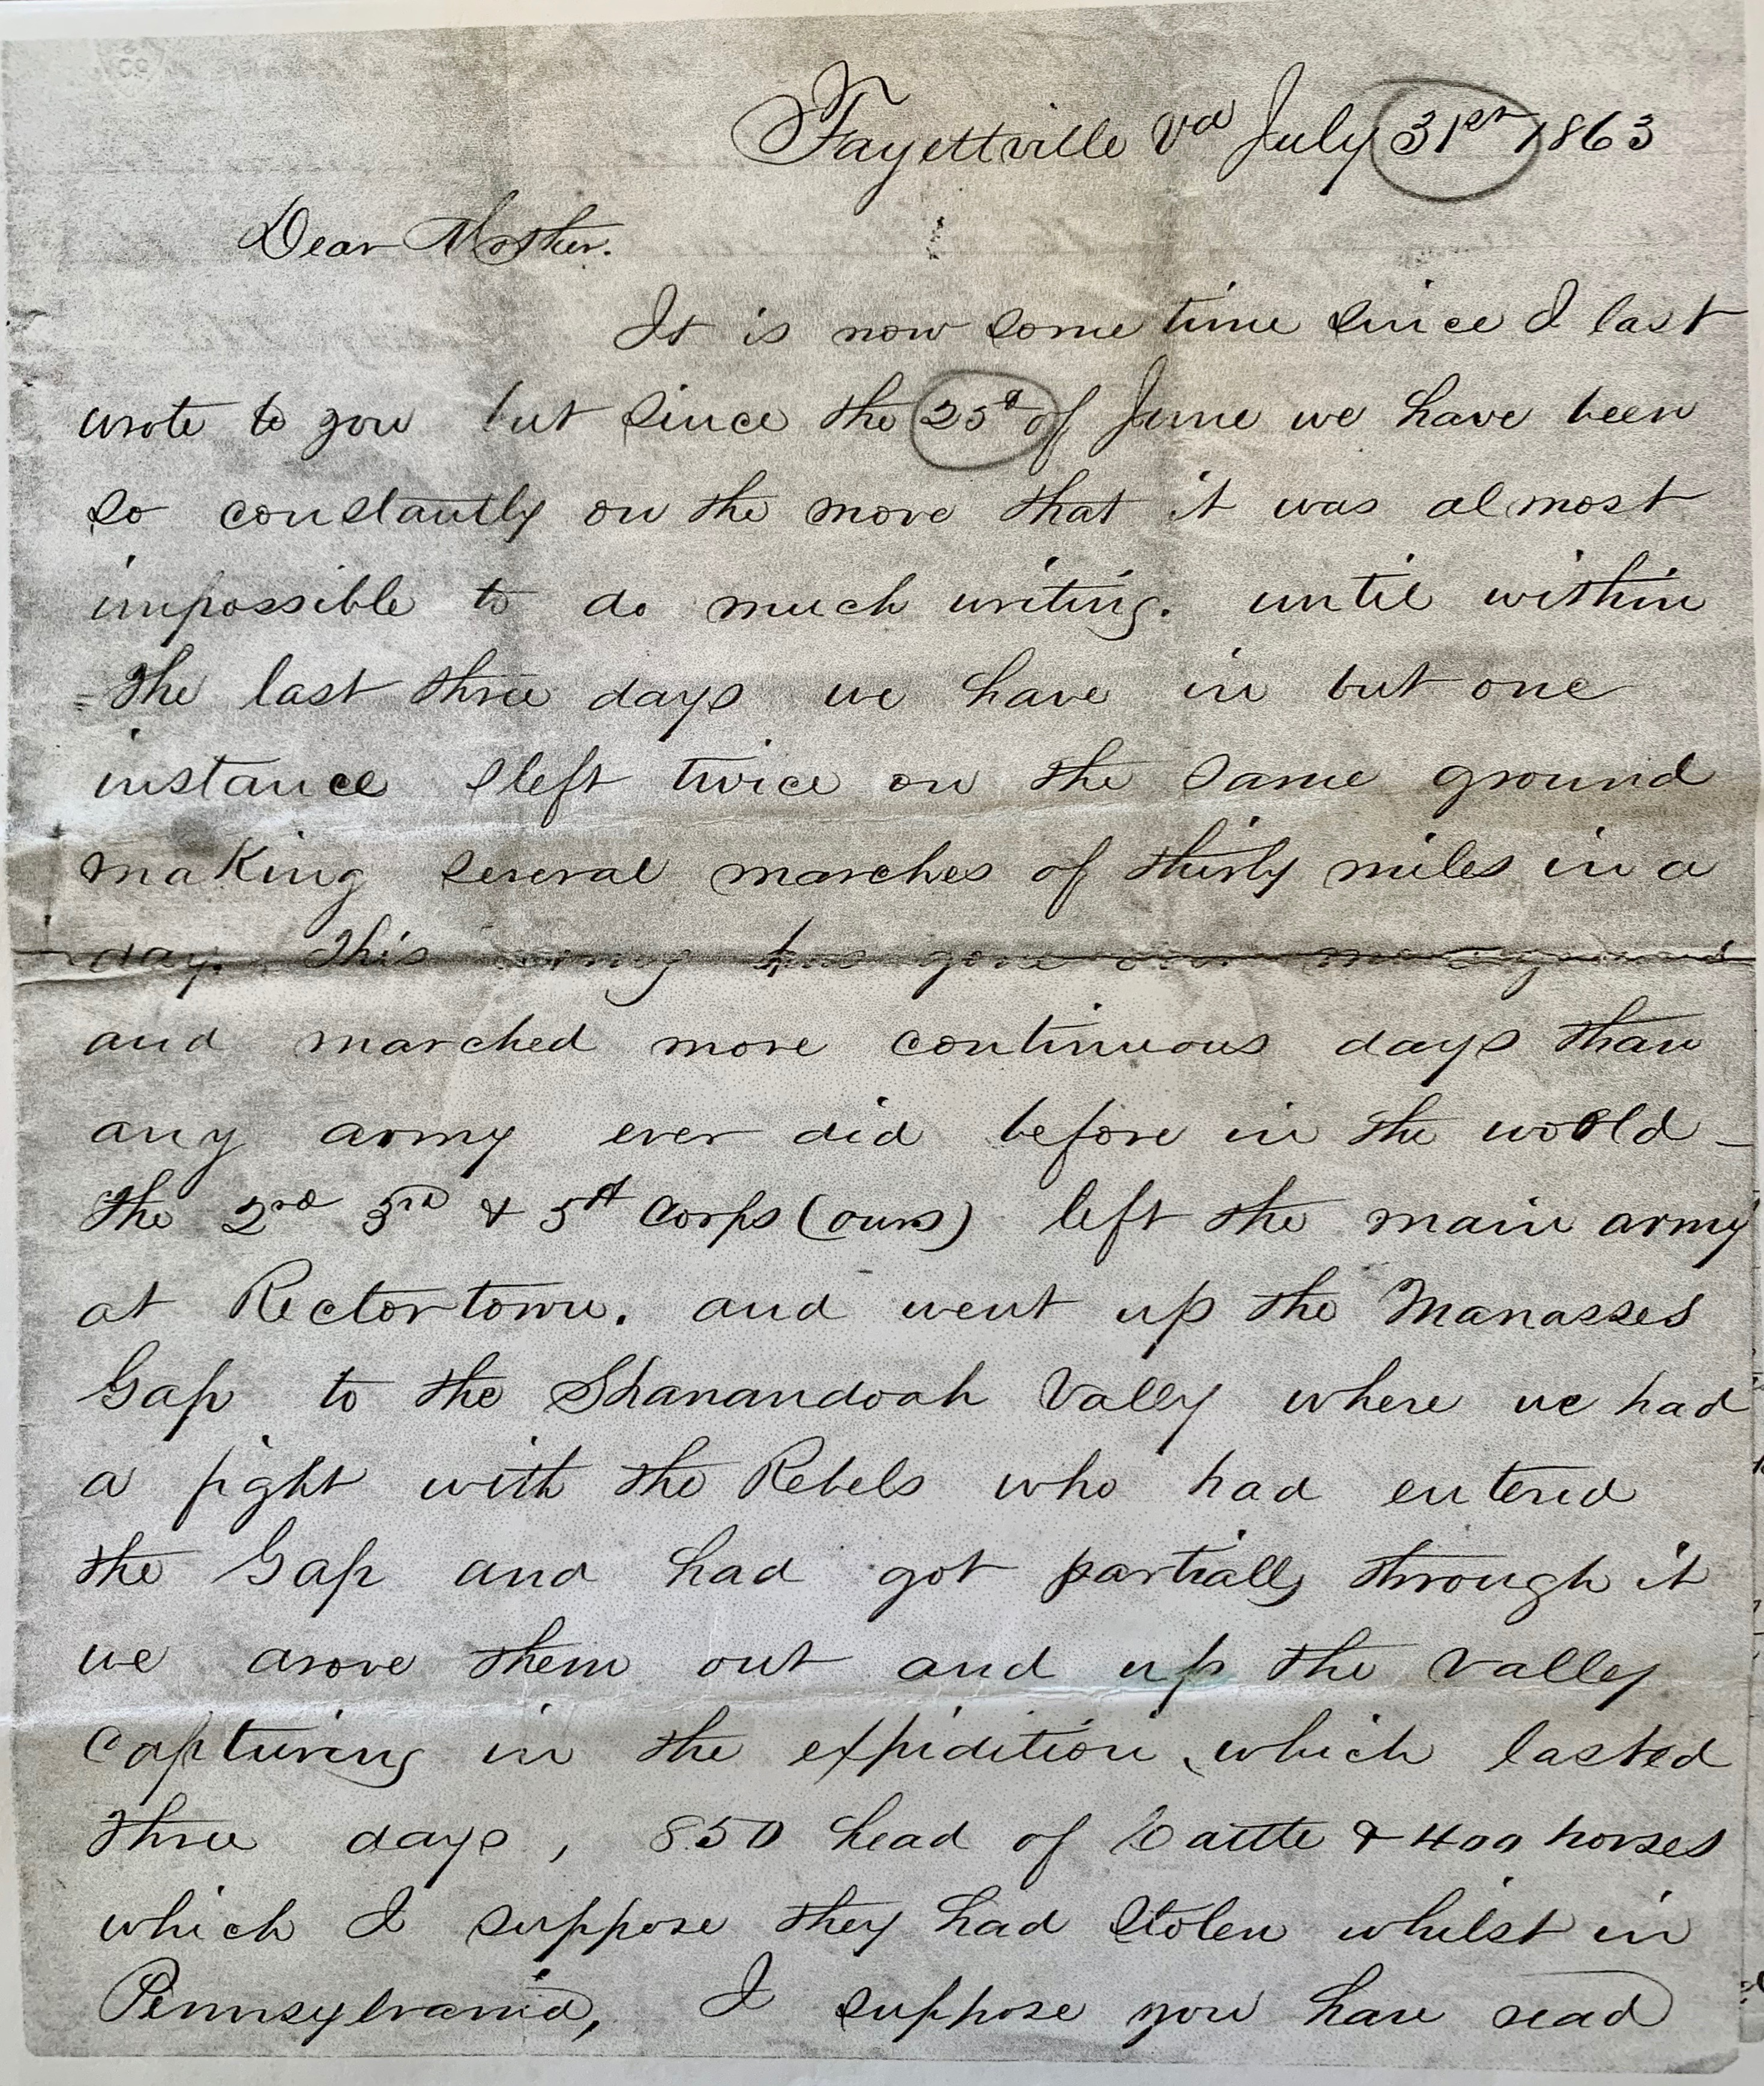 Fayettville Va July 31st 1863
Dear Mother.
It is now some time since I last
wrote to you but since the 25th of June we have been
so constantly on the move that it was almost
impossible to do much writing. until within
the last three days we have in but one
instance slept twice on the same ground
making several marches of thirty miles in a
day. This army has gone over more ground
and marched more continuous days than
any army ever did before in the world -
the 2nd 3rd & 5th Corps (ours) left the main army
at Rectortown. and went up the Manasses
Gap to the Shanandoah Vally where we had
a fight with the Rebels who had entered
the Gap and had got partially through it
we drove them out and up the valley
capturing in the expidition which lasted
three days, 850 head of Cattle & 400 horses
which I suppose they had stolen whilst in
Pennsylvania, I suppose you have read